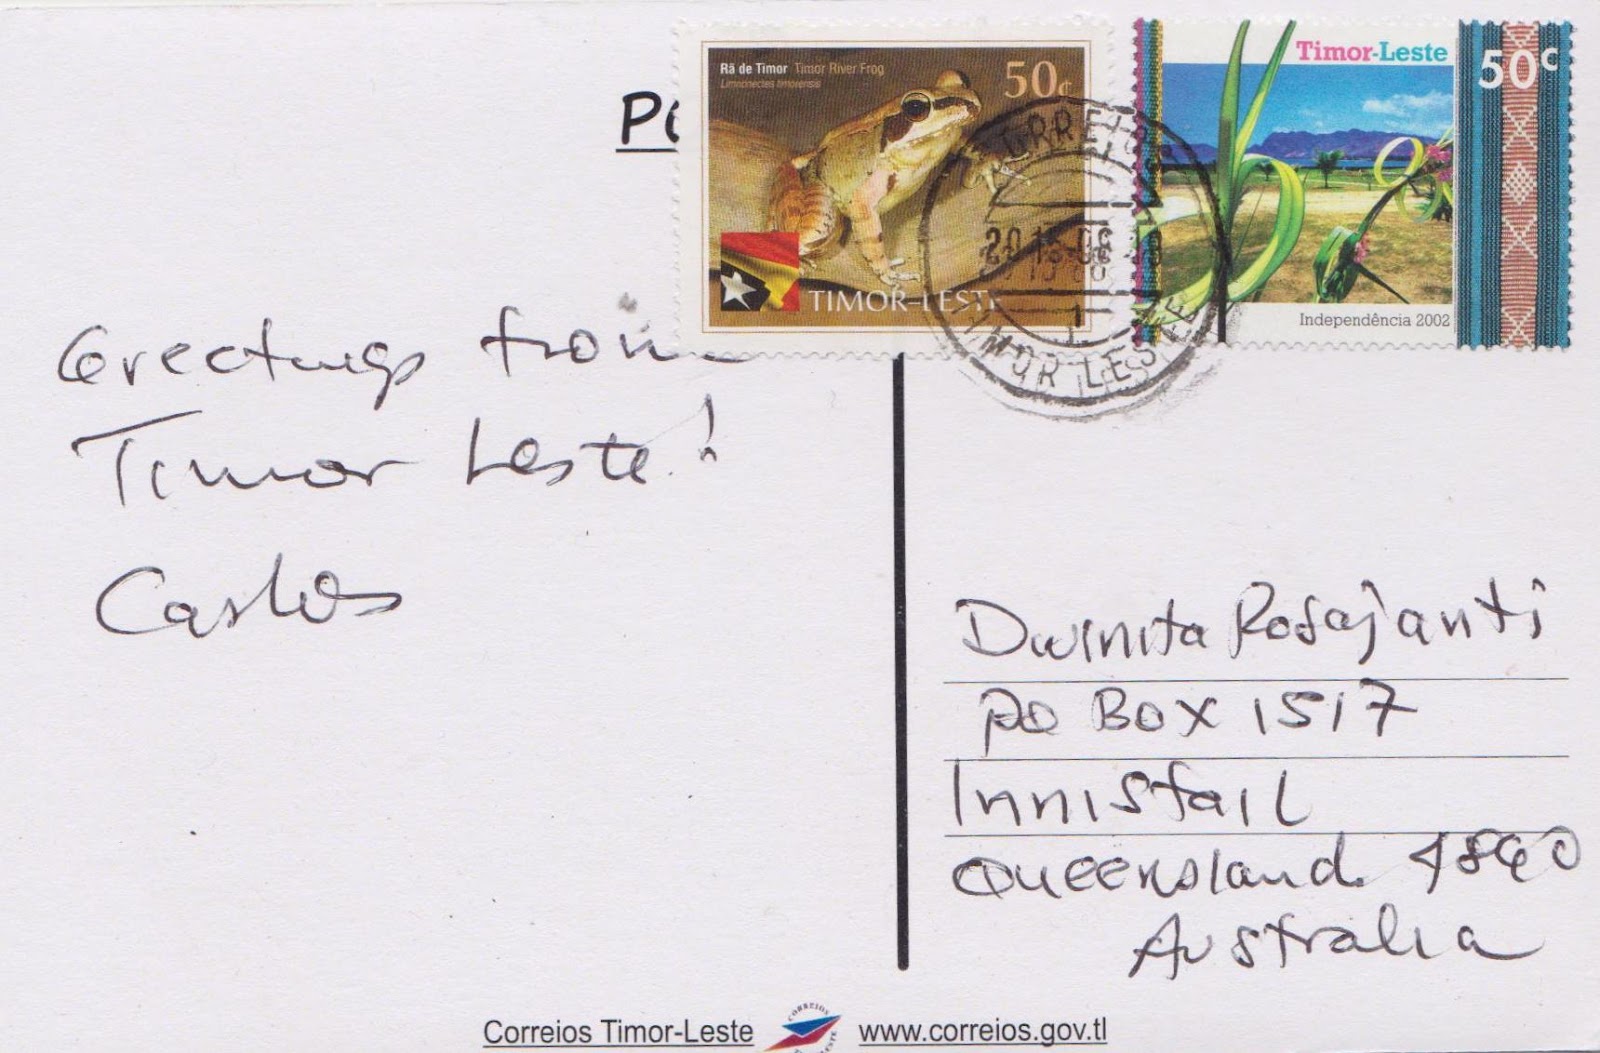 Rã de Timor Timor River Frog
Limnonectes timorensis
50c
TIMOR-LESTE
Timor-Leste
50c
Independência 2002
CORREIOS
TIMOR LESTE
Greetings from
Timor Leste!
Carlos
Dwinita Rosajanti
PO Box 1517
Innisfail
Queensland 4860
Australia
Correios Timor-Leste www.correios.gov.tl